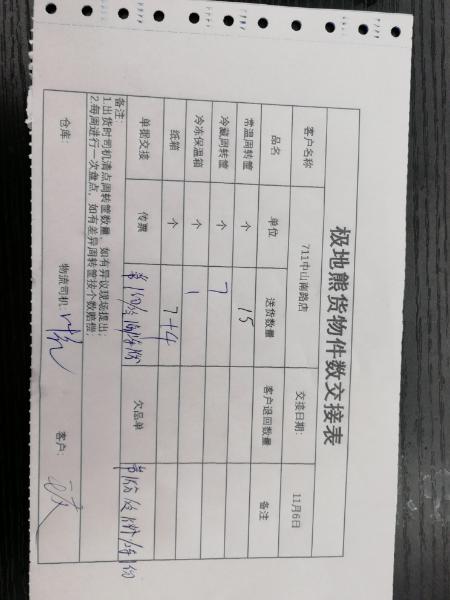 极地熊货物件数交接表
客户名称 711中山南路店 交接日期: 11月6日
品名 单位 送货数量 客户退回数量 备注
常温周转筐 个 15
冷藏周转筐 个 7
冷冻保温箱 个 1
纸箱 个 7+4
单据交接 传票 欠品单
备注:
1.出货时司机清点周转筐数量，如有异议现场提出;
2.每周进行一次盘点，如有差异周转筐按个数赔偿;
仓库: 物流司机: 客户: